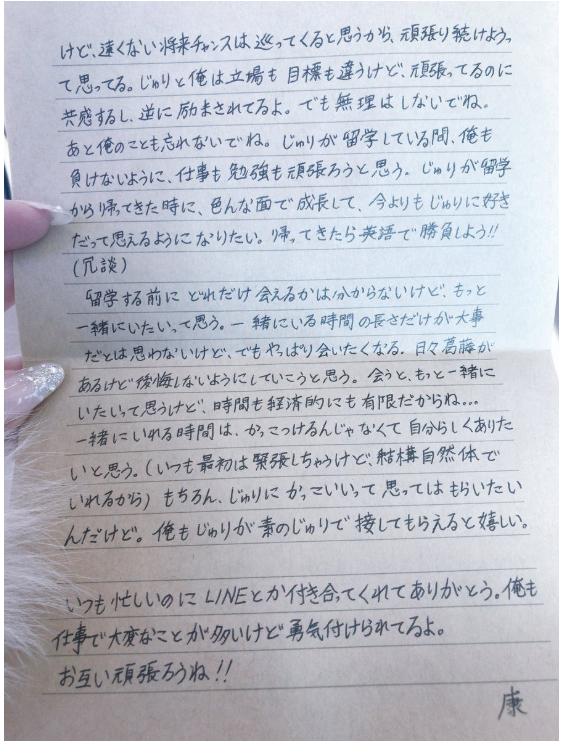 けど、遠くない将来チャンスは巡ってくると思うから、頑張り続けようっ
て思ってる。じゅりと俺は立場も目標も違うけど、頑張ってるのに
共感するし、逆に励まされてるよ。でも無理はしないでね。
あと俺のことも忘れないでね。じゅりが留学している間、俺も
負けないように、仕事も勉強も頑張ろうと思う。じゅりが留学
から帰ってきた時に、色んな面で成長して、今よりもじゅりに好き
だって思えるようになりたい。帰ってきたら英語で勝負しよう!!
(冗談)
留学する前にどれだけ会えるかは分からないけど、もっと
一緒にいたいって思う。一緒にいる時間の長さだけが大事
だとは思わないけど、でもやっぱり会いたくなる。日々葛藤が
あるけど後悔しないようにしていこうと思う。会うと、もっと一緒に
いたいって思うけど、時間も経済的にも有限だからね...
一緒にいれる時間は、かっこつけるんじゃなくて自分らしくありた
いと思う。(いつも最初は緊張しちゃうけど、結構自然体で
いれるから)もちろん、じゅりにかっこいいって思ってはもらいたい
んだけど。俺もじゅりが素のじゅりで接してもらえると嬉しい。
いつも忙しいのにLINEとか付き合ってくれてありがとう。俺も
仕事で大変なことが多いけど勇気付けられてるよ。
お互い頑張ろうね!!
康